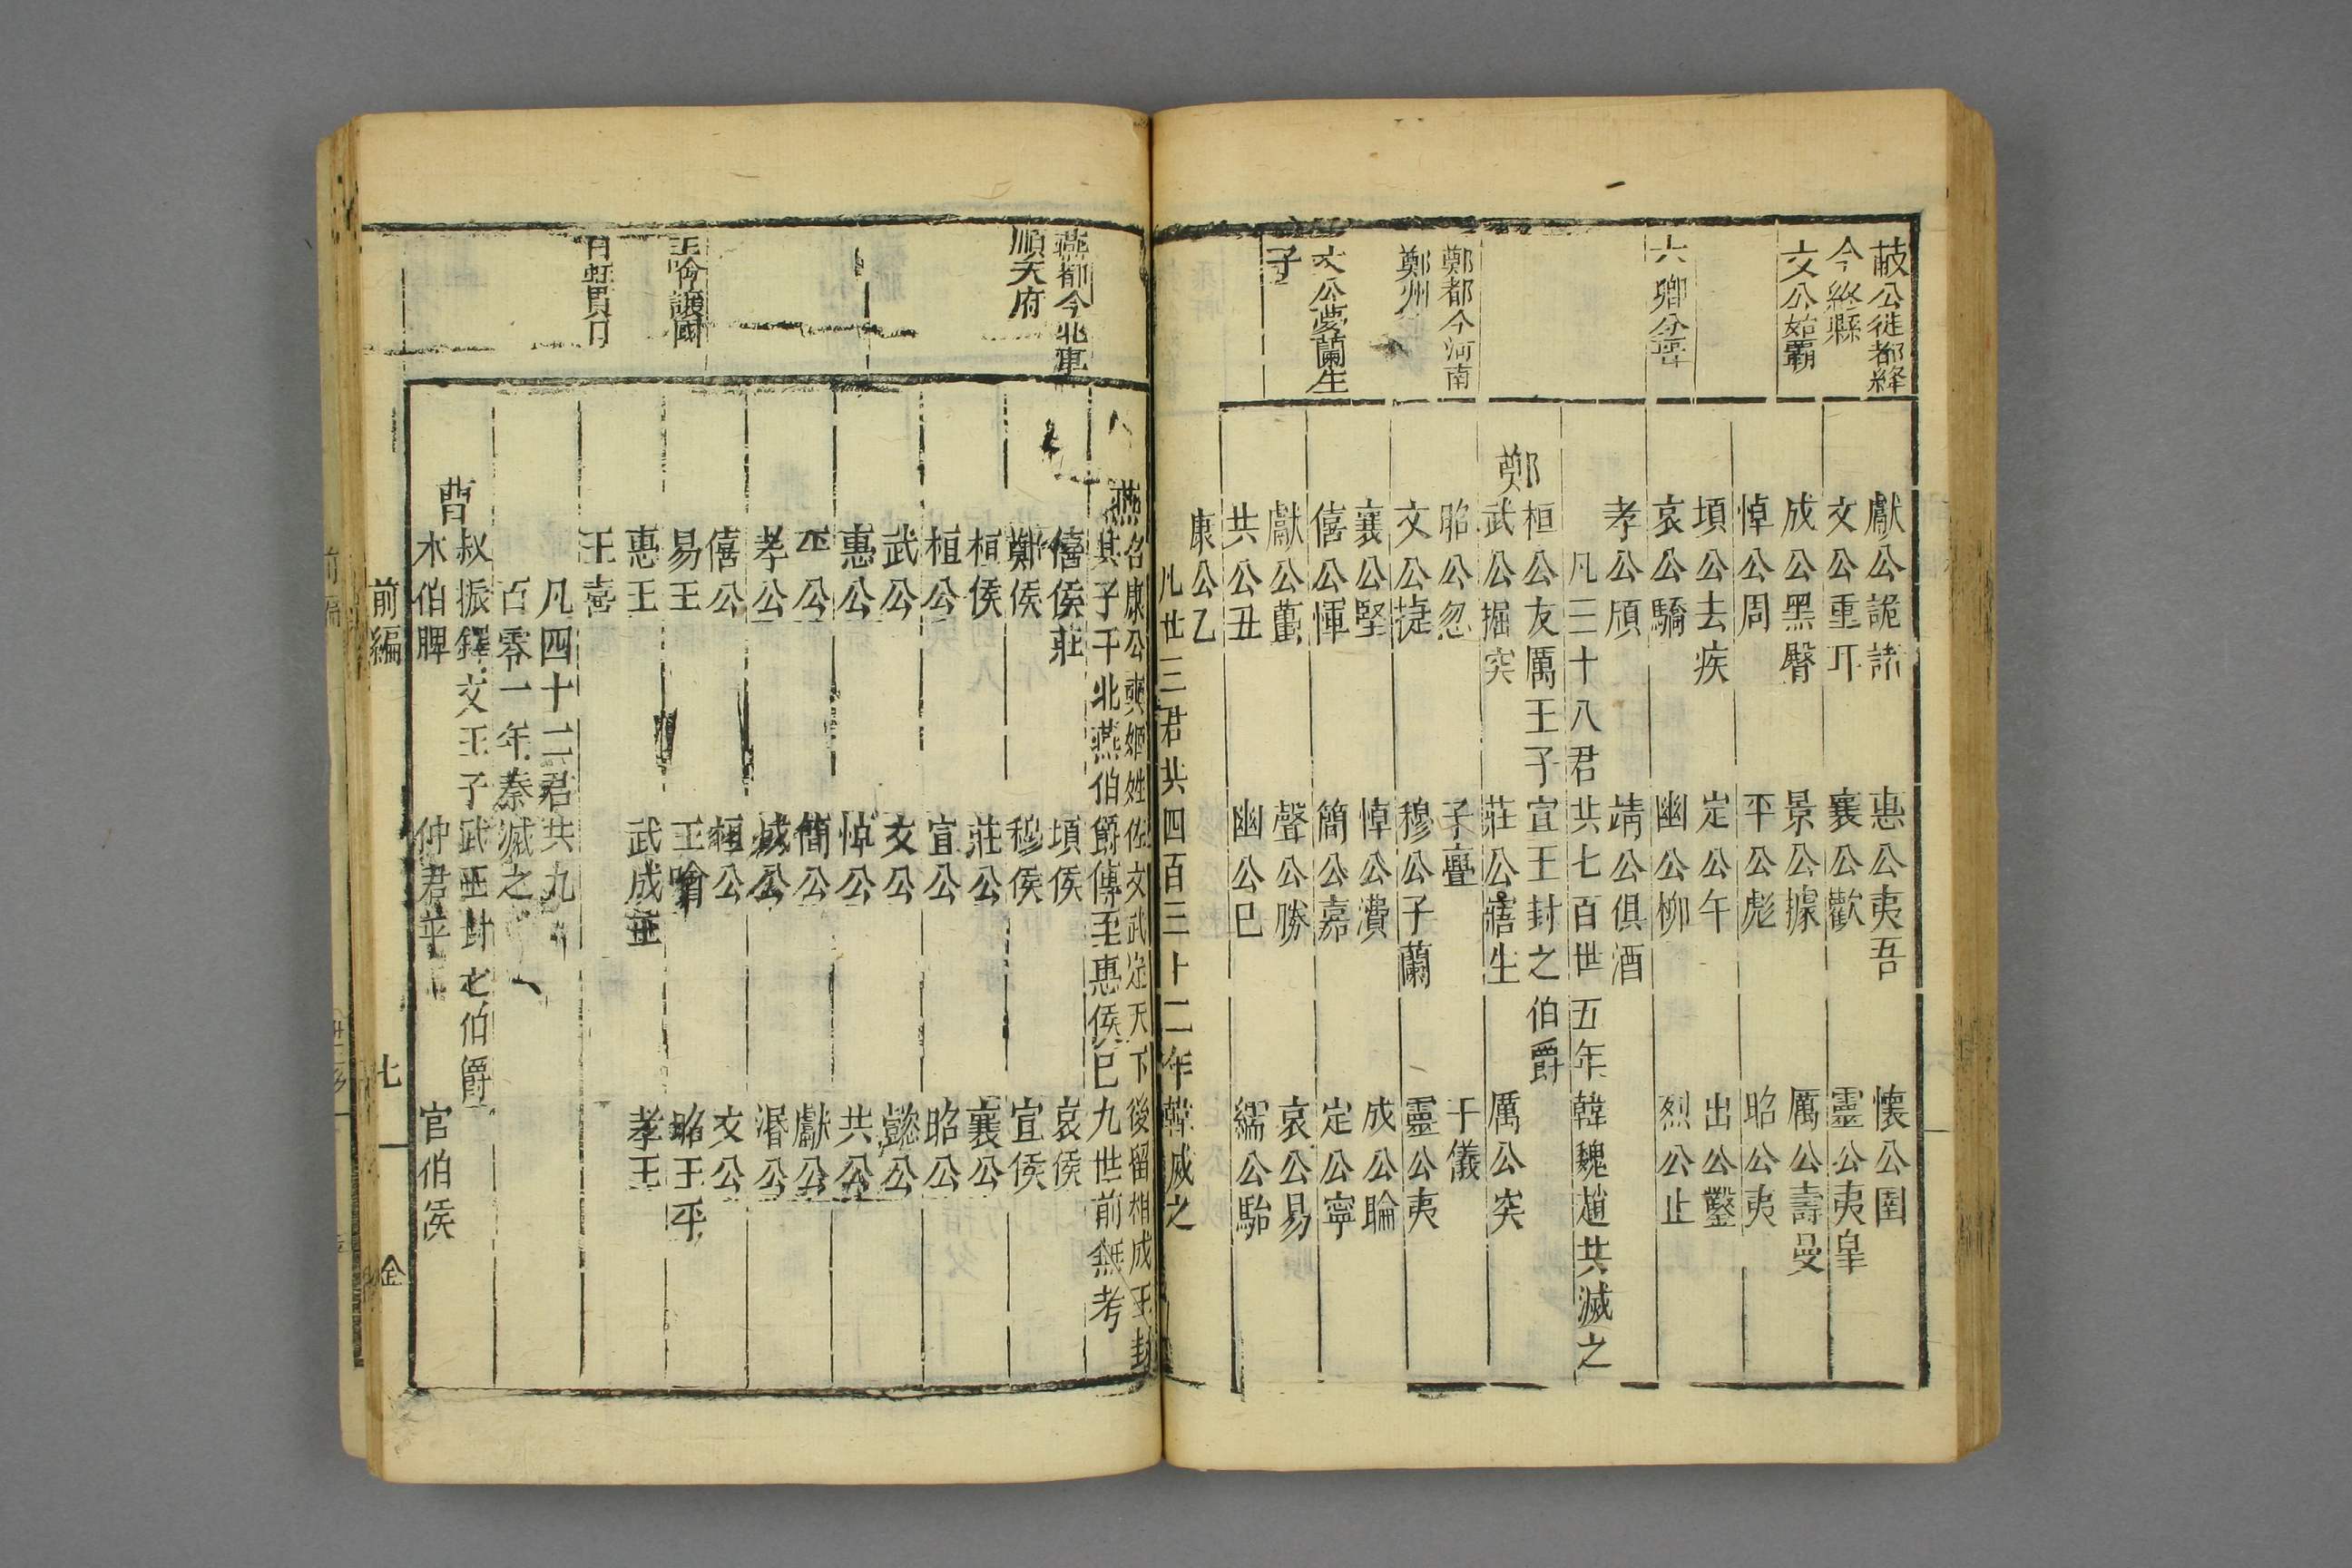 獻公詭諸 惠公夷吾 懷公圉
文公重耳 襄公歡 靈公夷皐
成公黑臀 景公據 厲公壽曼
悼公周 平公彪 昭公夷
頃公去疾 定公午 出公鑿
哀公驕 幽公柳 烈公止
孝公頎 靖公俱酒
凡三十八君共七百世五年韓魏趙共滅之
鄭
桓公友厲王子宣王封之伯爵
武公掘突 莊公寤生 厲公突
昭公忽 子亹 子儀
文公㨗 穆公子蘭 靈公夷
襄公堅 悼公濆 成公睔
僖公惲 簡公嘉 定公寧
獻公蠆 聲公勝 哀公易
共公丑 幽公巳 繻公駘
康公乙
凡世三君共四百三十二年韓滅之
公徙都絳
今絳縣
文公始霸
六卿分晉
鄭都今河南
鄭州
文公夢蘭生
子
燕
召康公奭姬姓佐文武定天下後留相成王封
其子于北燕伯爵傳至惠侯已九世前無考
僖侯莊 頃侯 哀侯
鄭侯 穆侯 宣侯
桓侯 莊公 襄公
桓公 宣公 昭公
武公 文公 懿公
惠公 悼公 共公
平公 簡公 獻公
孝公 成公 湣公
僖公 桓公 文公
易王 王噲 昭王平
惠王 武成王 孝王
王喜
凡四十二君共九
百零一年秦滅之
曹
叔振鐸文王子武王封之伯爵
木伯脾 仲君平 官伯侯
燕都今北
順天府
王噲讓國
白虹貫日
前編 七